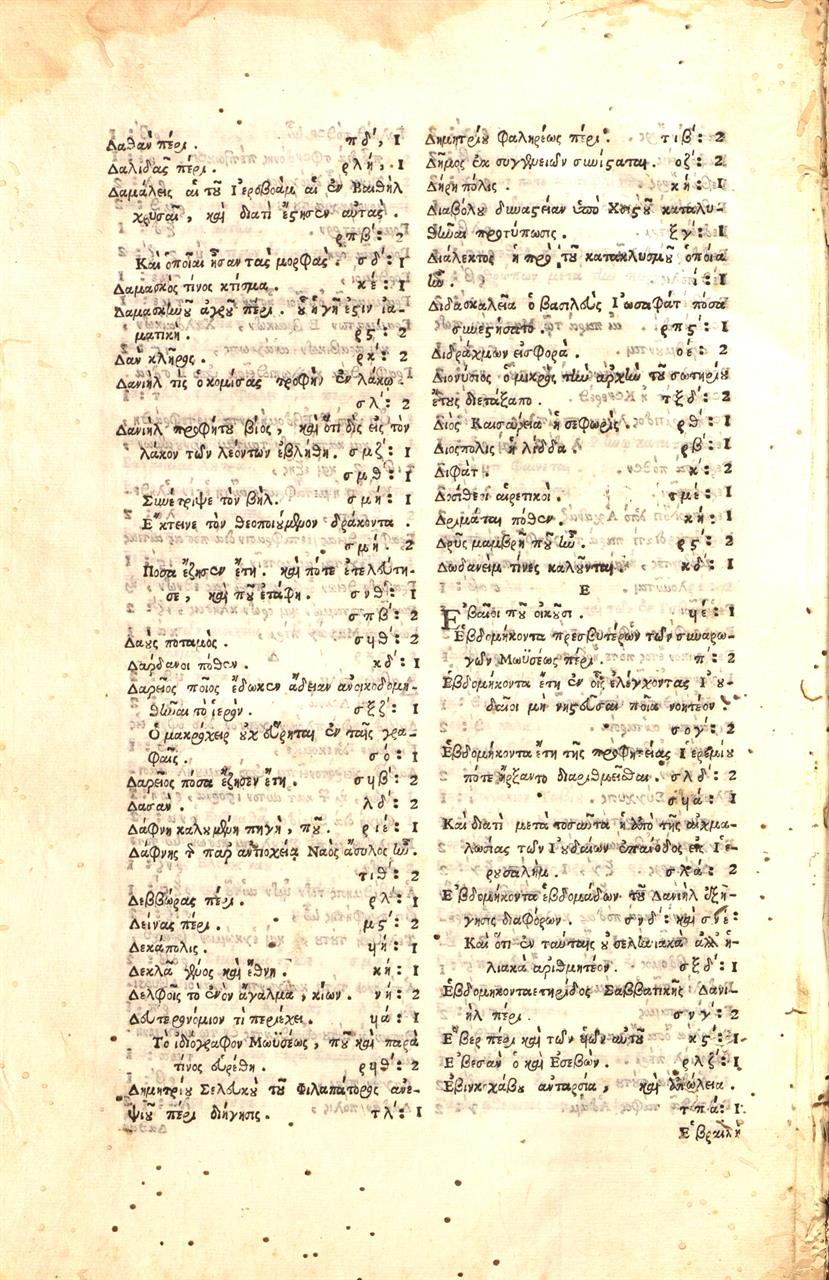 Δαθαὰν πέρι. πδ΄, 1
Δαλιδᾶς πέρι. ρλή, 1
Δαμάλεις αἱ τοῦ Ἱεροβοὰμ αἱ ἐν Βαιθὴλ
χρυσαῖ, καὶ διατὶ ἔςησεν αὐτάς.
ρπβ΄: 2
Καὶ ὁποῖαι ἦσαν τὰς μορφάς. σδ΄: 1
Δαμασκὸς τίνος κτίσμα. κέ: 1
Δαμασκηνοῦ ἀγροῦ πέρι. οὗ ἡ γῆ ἐςιν ἰα-
ματική. ρς΄: 2
Δὰν κλῆρος. ρκ΄: 2
Δανιὴλ τίς ὁ κομίσας τροφὴν ἐν λάκῳ.
σλ΄: 2
Δανιὴλ προφήτου βίος, καὶ ὅτι δὶς εἰς τὸν
λάκον τῶν λεόντων ἐβλήθη. σμζ΄: 1
σμθ΄: 1
Συνέτριψε τὸν βήλ. σμή: 1
Ἔκτεινε τὸν θεοποιούμενον δράκοντα.
σμή. 2
Πόσα ἔζησεν ἔτη. καὶ πότε ἐτελεύτη-
σε, καὶ ποῦ ἐτάφη. σνθ΄: 1
σπβ΄: 2
Δαυς ποταμός. σϟθ΄: 2
Δάρδανοι πόθεν. κδ΄: 1
Δαρεῖος ποῖος ἔδωκεν ἄδειαν ἀνοικοδομη-
θῆναι τὸ ἱερόν. σξζ΄: 1
Ὁ μακρόχειρ οὐχ εὕρηται ἐν ταῖς γρα-
φαῖς. σό: 1
Δαρεῖος πόσα ἔζησεν ἔτη. σϟβ΄: 2
Δασάν. λδ΄: 2
Δάφνη καλουμένη πηγή, ποῦ. ριέ: 1
Δάφνης τ παρ' ἀντιοχείᾳ Ναὸς ἄσυλος ἦν.
τιθ΄: 2
Δεββώρας πέρι. ρλ΄: 1
Δείνας πέρι. μς΄: 2
Δεκάπολις. ϟή: 1
Δεκλᾶ γένος καὶ ἔθνη. κή: 1
Δελφοῖς τὸ ἐνὸν ἄγαλμα, κίων. νή: 2
Δευτερονόμιον τί περιέχει. ϟά: 1
Τὸ ἰδιόγραφον Μωϋσέως, ποῦ καὶ παρὰ
τίνος εὑρέθη. ρϟθ΄: 2
Δημητρίου Σελεύκου τοῦ Φιλαπάτορος ἀνε-
ψιοῦ πέρι διήγησις. τλ΄: 1
Δημητρίου Φαληρέως πέρι. τιβ΄: 2
Δῆμος ἐκ συγγενειῶν συνίςαται. οζ΄: 2
Δήρη πόλις. κή: 1
Διαβόλου δυναςείαν ὑπὸ Χριςοῦ καταλυ-
θῆναι προτύπωσις. ξγ΄: 1
Διάλεκτος ἡ πρὸ τοῦ κατακλυσμοῦ ὁποία
ἦν. ί: 1
Διδασκαλεῖα ὁ βασιλεὺς Ἰωσαφὰτ πόσα
συνεςήσατο. ρπς΄: 1
Διδράχμων εἰσφορά. οέ: 2
Διονύσιος ὁ μικρὸς τὴν ἀρχὴν τοῦ σωτηρίου
ἔτους διετάξατο. τξδ΄: 2
Διὸς Καισάρεια ἡ σεφωρίς. ρθ΄: 1
Διόσπολις ἡ λίδδα. ρβ΄: 1
Διφάτ. κ: 2
Δοσίθεοι αἱρετικοί. τμέ: 1
Δριμάται πόθεν. κή: 1
Δρῦς μαμβρῆ ποῦ ἦν. ρς΄: 2
Δωδανεὶμ τίνες καλοῦνται. κδ΄: 1
Ε
Ἐβαῖοι ποῦ οἰκοῦσι. ϟέ: 1
Ἑβδομήκοντα πρεσβυτέρων τῶν συναρω-
γῶν Μωϋσέως πέρι. π΄: 2
Ἑβδομήκοντα ἔτη ἐν οἷς ἐλέγχονται Ἰου-
δαῖοι μὴ νηςεῦσαι ποῖα νοητέον.
σογ΄: 2
Ἑβδομήκοντα ἔτη τῆς προφητείας Ἱερεμίου
πότε ἤρξαντο διαριθμεῖσθαι. σλδ΄: 2
σϟά: 1
Καὶ διατὶ μετὰ τοσαῦτα ἡ ἀπὸ τῆς αἰχμα-
λωσίας τῶν Ἰουδαίων ἐπάνοδος εἰς Ἱε-
ρυσαλήμ. σλά: 2
Ἑβδομήκοντα ἑβδομάδων τοῦ Δανιὴλ ἐξή-
γησις διαφόρων. σνδ΄: καὶ σνέ:
Καὶ ὅτι ἐν ταύταις οὐ σεληνιακὰ ἀλλ' ἡ-
λιακὰ ἀριθμητέον. σξδ΄: 1
Ἑβδομηκονταετηρίδος Σαββατικῆς Δανι-
ὴλ πέρι. σνγ΄: 2
Ἔβερ πέρι καὶ τῶν υἱῶν αὐτοῦ. κς΄: 1
Ἐβεσὰν ὁ καὶ Ἐσεβών. ρλζ΄: 1
Ἐβινκχάβου ἀνταρσία, καὶ ἀπώλεια.
τπά: 1
Ἑβραϊκὴ